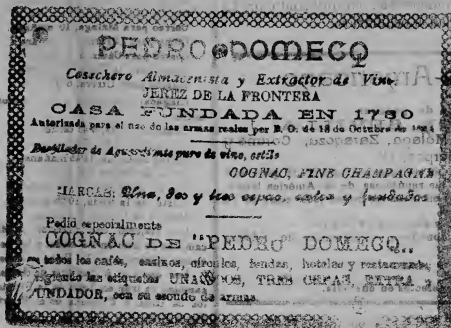 PEDRO DOMECQ
Cosechero Almacenista y Extractor de Vino
JEREZ DE LA FRONTERA
CASA FUNDADA EN 1730
Autorizada para el uso de las armas reales por R. O. de 18 de Octubre de
Destilador de Aguardiente puro de vino, estilo
COGNAC, FINE CHAMPAGNE
MARCAS: Una, dos y tres cepas, extra y fundador
Pedid especialmente
COGNAC DE "PEDRO" DOMECQ
en todos los cafés, casinos, círculos, tiendas, hoteles y restaurants,
exigiendo las etiquetas UNA, DOS, TRES CEPAS EXTRA
FUNDADOR, con su escudo de armas